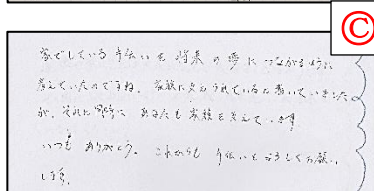 ©
家でしている手伝いを将来の夢につながるように
考えていたのですね。家族に支えられていると書いていました
が、それと同時にあなたも家族を支えています
いつもありがとう。これからも手伝いをよろしくお願い
します。